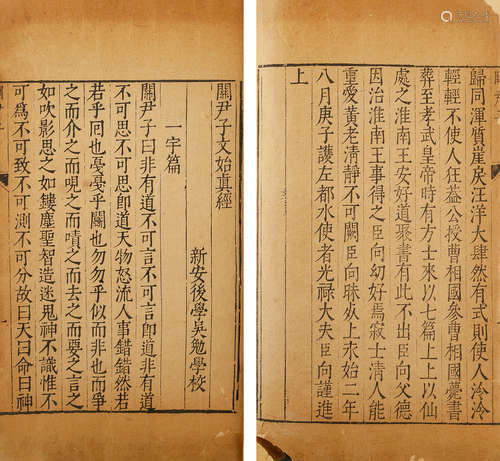 歸同渾質崖戾汪洋大肆然有式則使人泠泠
輕輕不使人狂蓋公授曹相國參曹相國薨書
葬至孝武皇帝時有方士來以七篇上上以仙
處之淮南王安好道聚書有此不出臣向父德
因治淮南王事得之臣向幼好焉寂士清人能
重愛黄老清靜不可闕臣向昧死上永始二年
八月庚子護左都水使者光禄大夫臣向謹進
上
關尹子文始真經
新安後學吳勉學校
一宇篇
關尹子曰非有道不可言不可言即道非有道
不可思不可思即道天物怒流人事錯錯然若
若乎囘也戞戞乎鬭也勿勿乎似而非也而爭
之而介之而哯之而嘖之而去之而要之言之
如吹影思之如鏤塵聖智造迷鬼神不識惟不
可爲不可致不可測不可分故曰天曰命曰神